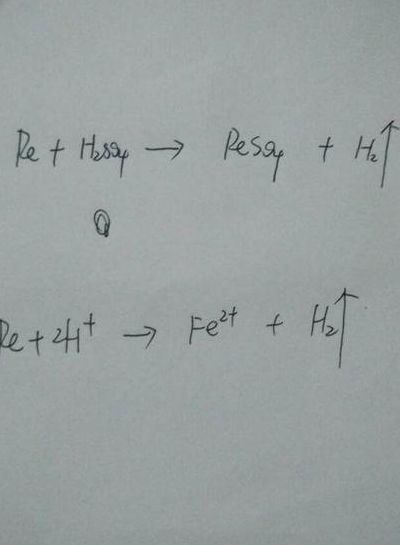 Fe + H₂SO₄ → FeSO₄ + H₂↑
Fe + 2H⁺ → Fe²⁺ + H₂↑